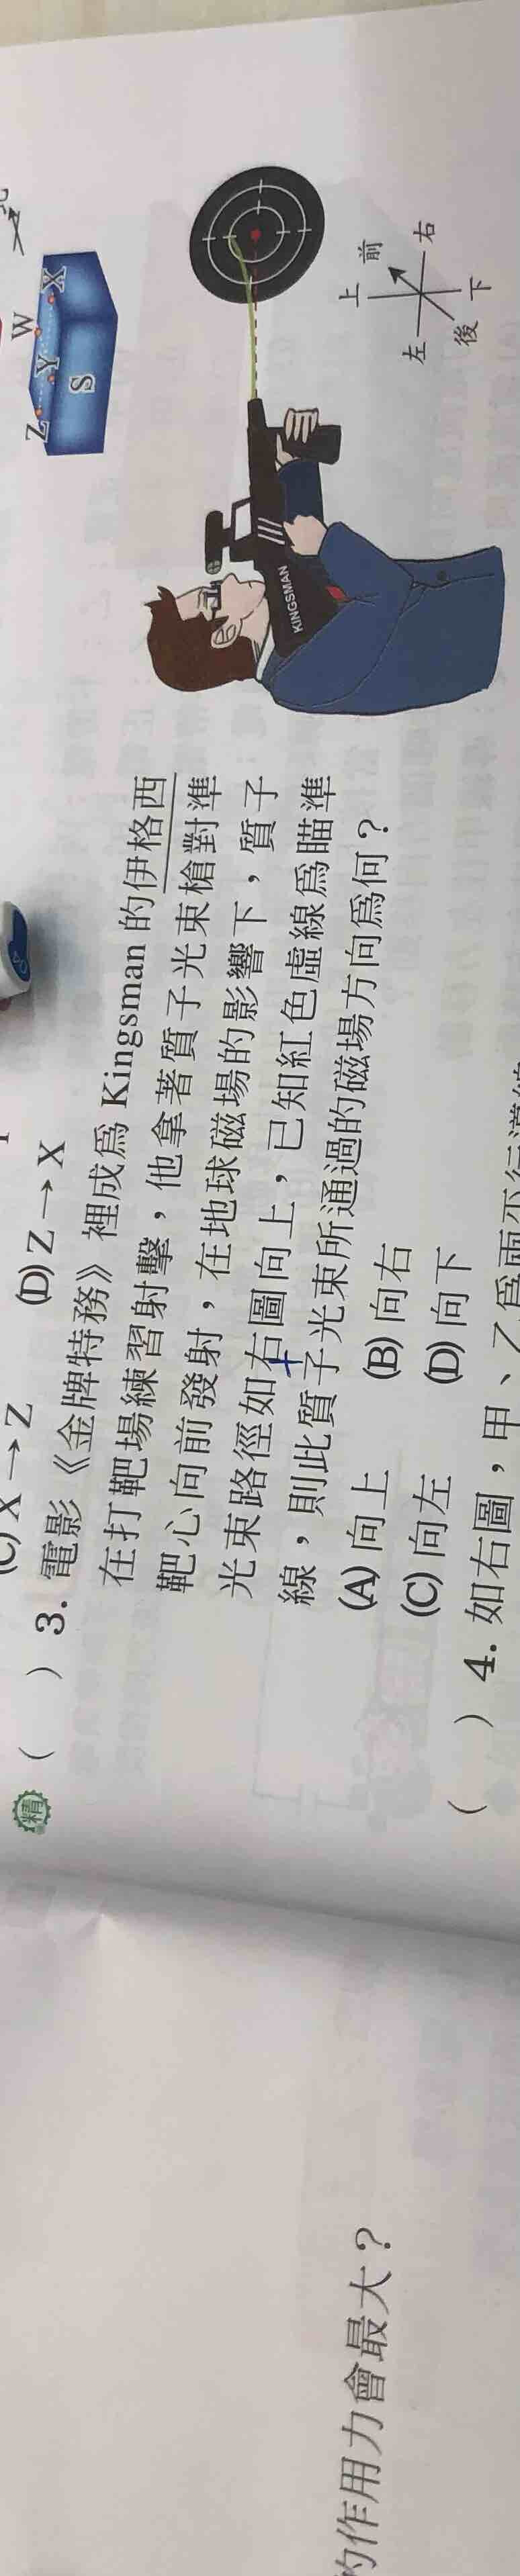 Z W
Y X
S
(C) X→Z (D) Z→X
精 ( ) 3. 電影《金牌特務》裡成為 Kingsman 的伊格西
在打靶場練習射擊，他拿著質子光束槍對準
靶心向前發射，在地球磁場的影響下，質子
光束路徑如右圖向上，已知紅色虛線為瞄準
線，則此質子光束所通過的磁場方向為何？
(A) 向上 (B) 向右
(C) 向左 (D) 向下
KINGSMAN
上 前
左 右
後 下
( ) 4. 如右圖，甲、乙為兩平行導線
的作用力會最大？